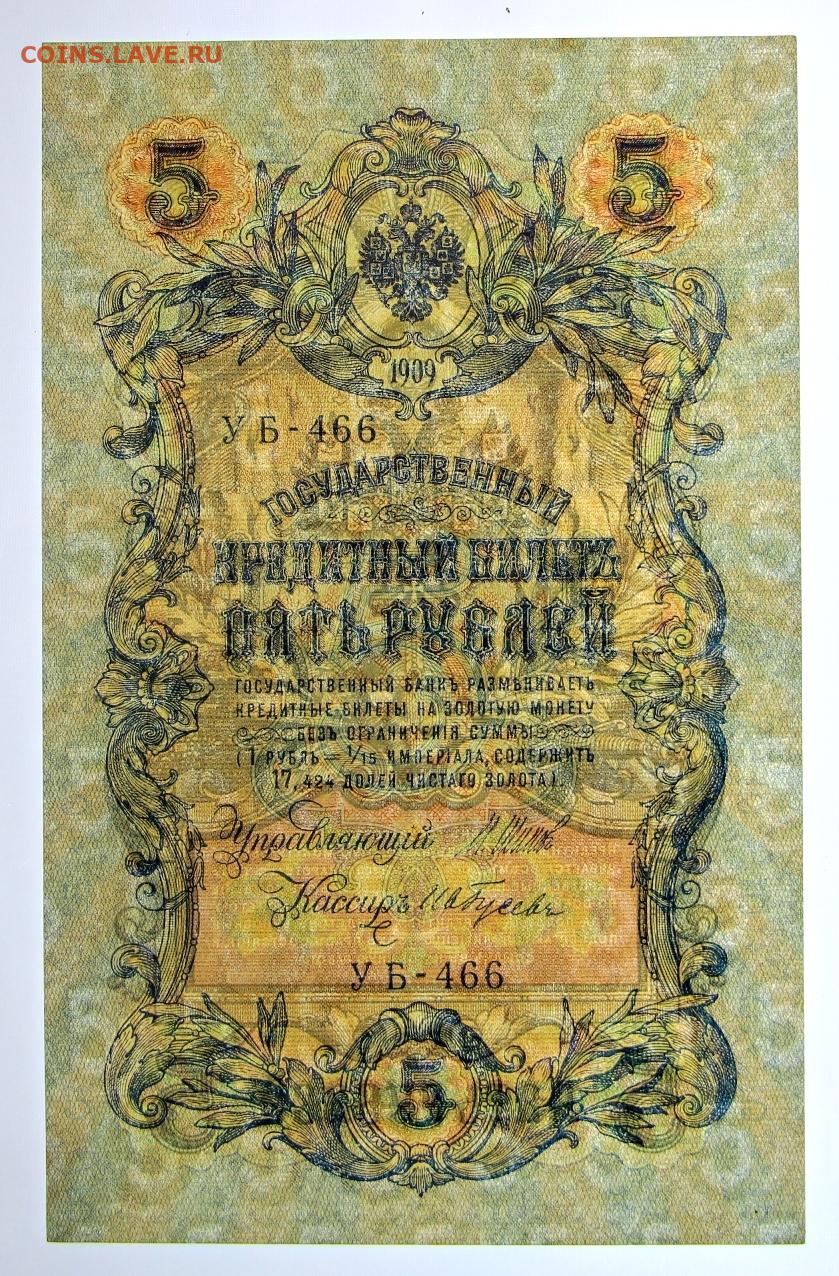 COINS.LAVE.RU
5 5
1909
УБ-466
ГОСУДАРСТВЕННЫЙ
КРЕДИТНЫЙ БИЛЕТЪ
ПЯТЬ РУБЛЕЙ
ГОСУДАРСТВЕННЫЙ БАНКЪ РАЗМѢНИВАЕТЪ
КРЕДИТНЫЕ БИЛЕТЫ НА ЗОЛОТУЮ МОНЕТУ
БЕЗЪ ОГРАНИЧЕНІЯ СУММЫ
(1 РУБЛЬ = 1/15 ИМПЕРІАЛА, СОДЕРЖИТЪ
17,424 ДОЛЕЙ ЧИСТАГО ЗОЛОТА).
Управляющий
Кассиръ
УБ-466
5